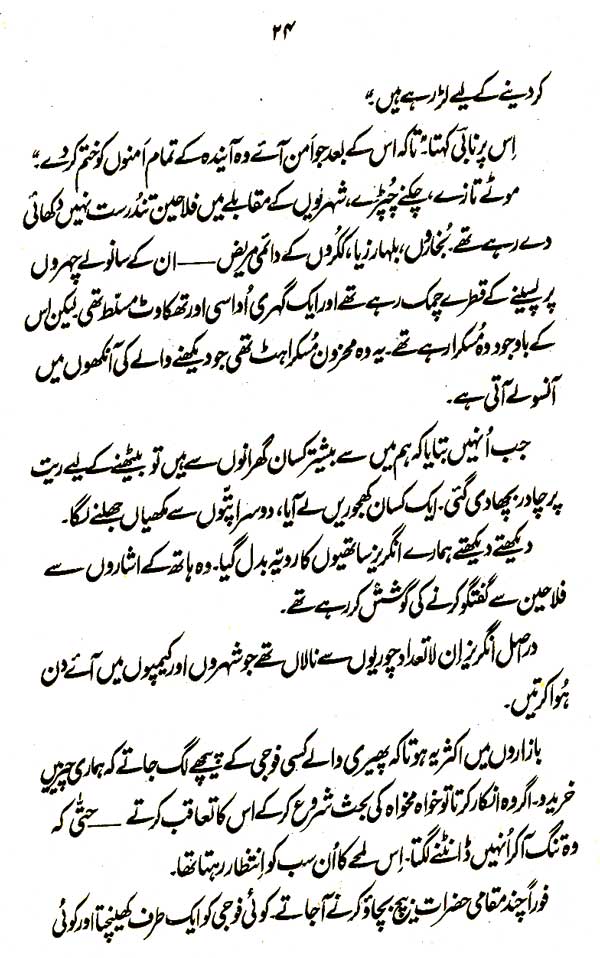 ۲۴
کر دینے کے لیے لڑ رہے ہیں۔“
اِس پر نابی کہتا: ”تاکہ اس کے بعد جو اَمن آئے وہ آیندہ کے تمام اَمنوں کو ختم کر دے۔“
موٹے تازے، چکنے چُپڑے، شہریوں کے مقابلے میں فلاحین تندُرست نہیں دکھائی
دے رہے تھے۔ بُخاروں، بلہارزیا، ککروں کے دائمی مریض —— ان کے سانولے چہروں
پر پسینے کے قطرے چمک رہے تھے اور ایک گہری اُداسی اور تھکاوٹ مسلّط تھی۔ لیکن اس
کے باوجود وہ مُسکرا رہے تھے۔ یہ وہ محزون مُسکراہٹ تھی جو دیکھنے والے کی آنکھوں میں
آنسو لے آتی ہے۔
جب اُنہیں بتایا کہ ہم میں سے بیشتر کسان گھرانوں سے ہیں تو بیٹھنے کے لیے ریت
پر چادر بچھا دی گئی۔ ایک کسان کھجوریں لے آیا، دوسرا پتّوں سے مکھیاں جھلنے لگا۔
دیکھتے دیکھتے ہمارے انگریز ساتھیوں کا رویّہ بدل گیا۔ وہ ہاتھ کے اشاروں سے
فلاحین سے گفتگو کرنے کی کوشش کر رہے تھے۔
دراصل انگریز اِن لاتعداد چوریوں سے نالاں تھے جو شہروں اور کیمپوں میں آئے دن
ہُوا کرتیں۔
بازاروں میں اکثر یہ ہوتا کہ پھیری والے کسی فوجی کے پیچھے لگ جاتے کہ ہماری چیزیں
خریدو۔ اگر وہ انکار کرتا تو خواہ مخواہ کی بحث شروع کر کے اس کا تعاقب کرتے —— حتّٰی کہ
وہ تنگ آ کر اُنہیں ڈانٹنے لگتا۔ اِس لمحے کا اُن سب کو اِنتظار رہتا تھا۔
فوراً چند مقامی حضرات بیچ بچاؤ کرنے آ جاتے۔ کوئی فوجی کو ایک طرف کھینچتا اور کوئی